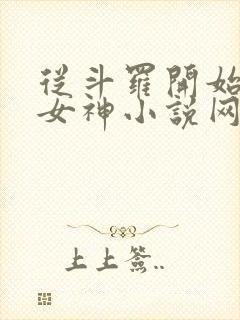 從斗羅開始
女神小説网
上上簽..